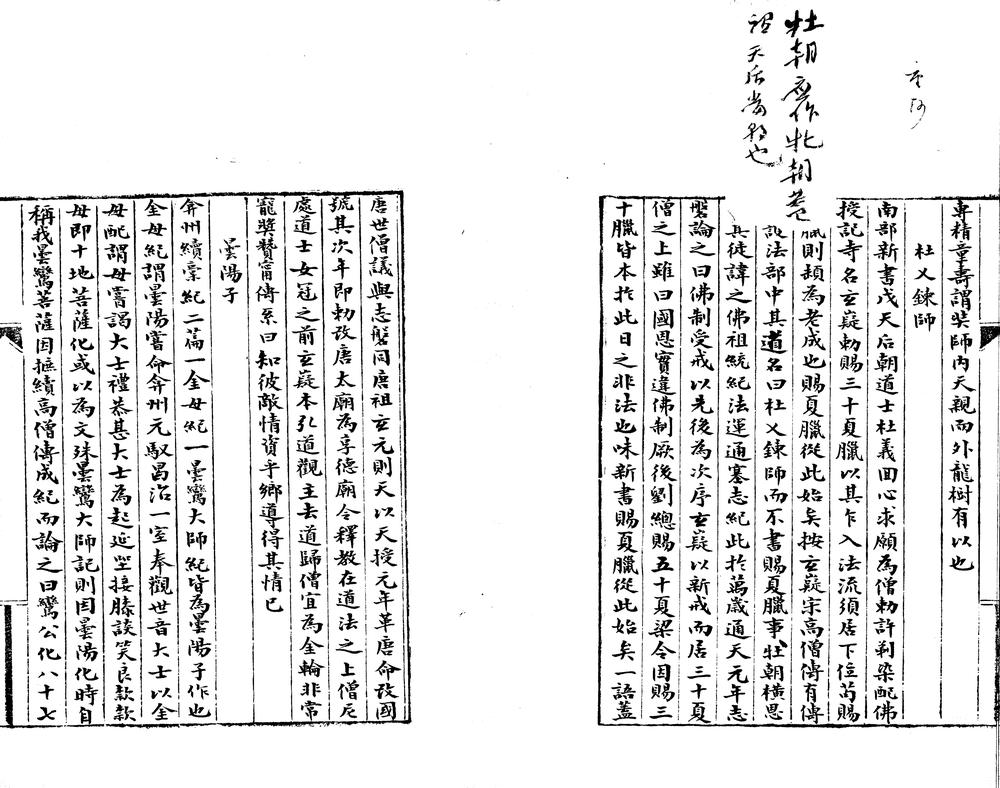 牡朝應作牝朝蓋
謂天后當朝也
專精童壽謂奘師內天親而外龍樹有以也
杜乂鍊師
南部新書戊天后朝道士杜義回心求願為僧勅許剃染配佛
授記寺名玄嶷勅賜三十夏臘以其乍入法流須居下位苟賜
臘則頳為老成也賜夏臘從此始矣按玄嶷宋高僧傳有傳
護法部中其道名曰杜乂鍊師而不書賜夏臘事牡朝橫恩
其徒諱之佛祖統紀法運通塞志紀此於萬歲通天元年志
磐論之曰佛制受戒以先後為次序玄嶷以新戒而居三十夏
僧之上雖曰國恩實違佛制厥後劉總賜五十夏梁令因賜三
十臘皆本於此日之非法也味新書賜夏臘從此始矣一語蓋
唐世僧議與志磐同唐祖玄元則天以天授元年革唐命改國
號其次年即勅改唐太廟為享德廟令釋教在道法之上僧尼
處道士女冠之前玄嶷本弘道觀主去道歸僧宜為金輪非常
寵奬贊甯傳系曰知彼敵情資乎鄉導得其情已
曇陽子
弇州續稾紀二篇一金母紀一曇鸞大師紀皆為曇陽子作也
金母紀謂曇陽嘗命弇州元馭昌治一室奉觀世音大士以金
母配謂母嘗謁大士禮恭甚大士為起延坐接膝談笑良款款
母即十地菩薩化或以為文殊曇鸞大師記則因曇陽化時自
稱我曇鸞菩薩因摭續高僧傳成紀而論之曰鸞公化八十七